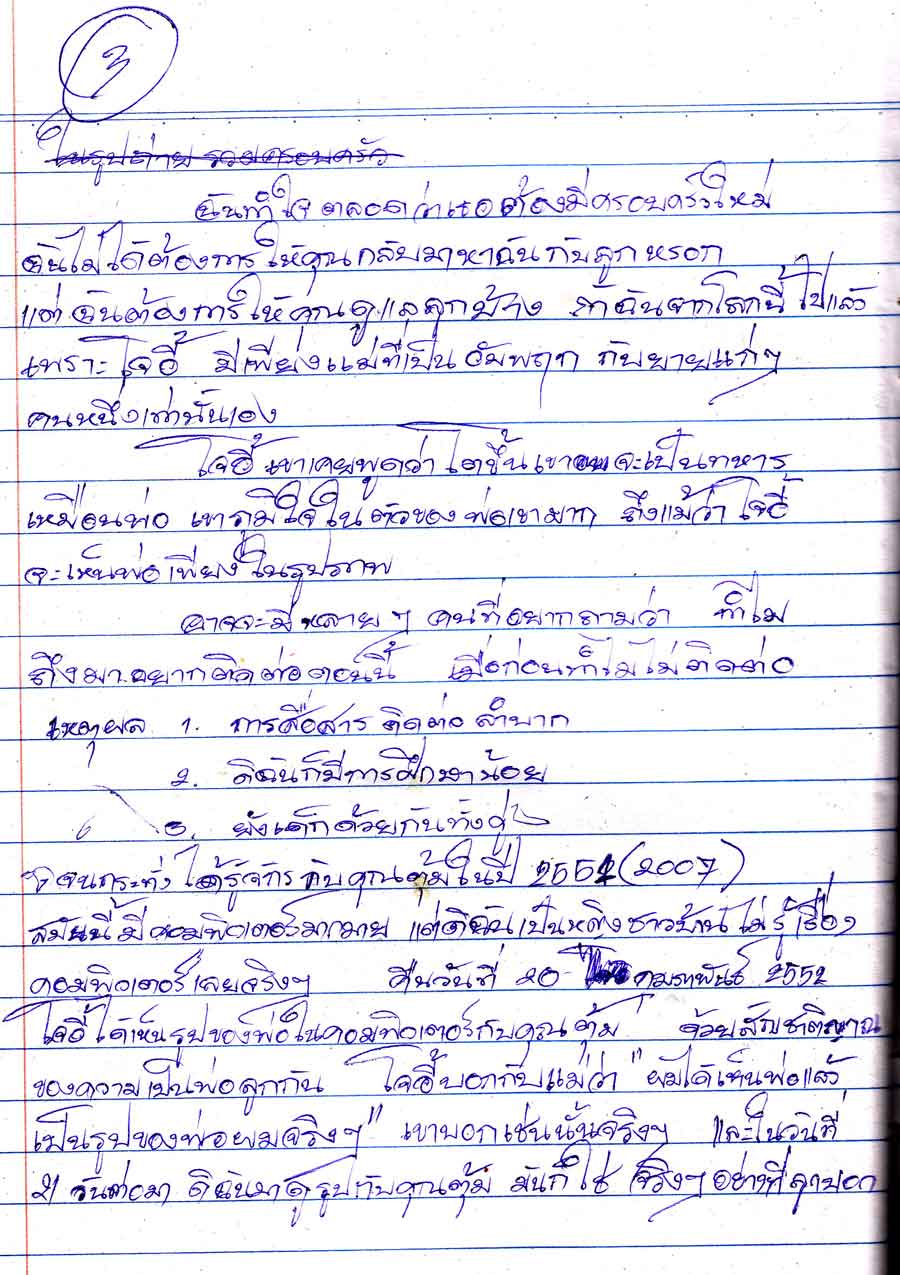 3
ในรูปถ่าย รวมครอบครัว
ฉันทำใจตลอดว่าเธอต้องมีครอบครัวใหม่
ฉันไม่ได้ต้องการให้คุณกลับมาหาฉันกับลูกหรอก
แต่ ฉันต้องการให้คุณดูแลลูกบ้าง ถ้าฉันจากโลกนี้ไปแล้ว
เพราะโจอี้ มีเพียงแม่ที่เป็นอัมพฤก กับยายแก่ๆ
คนหนึ่งเท่านั้นเอง
โจอี้ เขาเคยพูดว่า โตขึ้นเขาจะเป็นทหาร
เหมือนพ่อ เขาภูมิใจในตัวของพ่อเขามาก ถึงแม้ว่าโจอี้
จะเห็นพ่อเพียงในรูปภาพ
อาจจะมีหลายๆ คนที่อยากถามว่า ทำไม
ถึงมาอยากติดต่อตอนนี้ เมื่อก่อนทำไมไม่ติดต่อ
เหตุผล 1. การสื่อสาร ติดต่อ ลำบาก
2. ดิฉันก็มีการศึกษาน้อย
3. ยังเด็กด้วยกันทั้งคู่
จนกระทั่งได้รู้จักกับคุณตุ้มในปี 2552 (2007)
สมัยนี้มีคอมพิวเตอร์มากมาย แต่ดิฉันเป็นหญิงชาวบ้านไม่รู้เรื่อง
คอมพิวเตอร์เลยจริงๆ คืนวันที่ 20 กุมภาพันธ์ 2552
โจอี้ได้เห็นรูปของพ่อในคอมพิวเตอร์กับคุณตุ้ม ด้วยสัญชาติญาณ
ของความเป็นพ่อลูกกัน โจอี้บอกกับแม่ว่า "ผมได้เห็นพ่อแล้ว
เป็นรูปของพ่อผมจริงๆ" เขาบอกเช่นนั้นจริงๆ และในวันที่
21 วันต่อมา ดิฉันมาดูรูปกับคุณตุ้ม มันก็ใช่ จริงๆ อย่างที่ลูกบอก